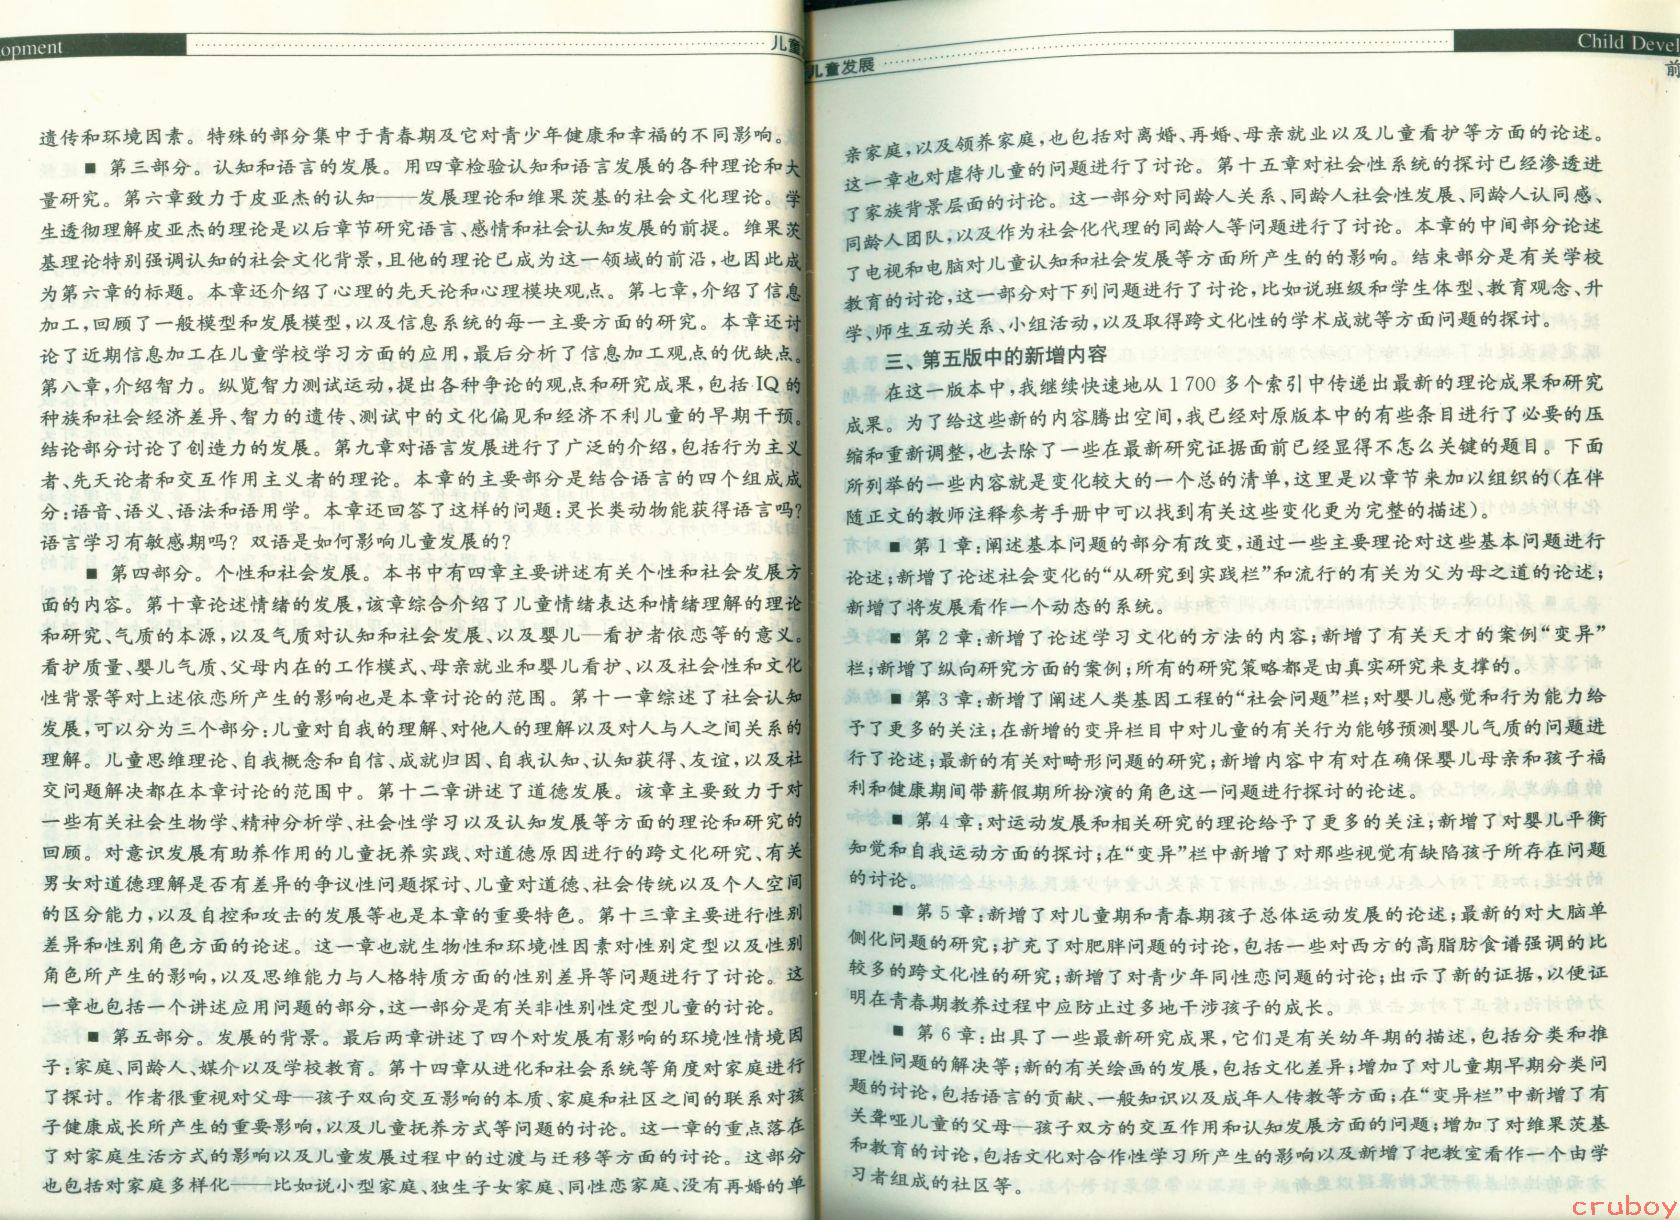 opment
儿童
遗传和环境因素。特殊的部分集中于青春期及它对青少年健康和幸福的不同影响。
■ 第三部分。认知和语言的发展。用四章检验认知和语言发展的各种理论和大
量研究。第六章致力于皮亚杰的认知——发展理论和维果茨基的社会文化理论。学
生透彻理解皮亚杰的理论是以后章节研究语言、感情和社会认知发展的前提。维果茨
基理论特别强调认知的社会文化背景,且他的理论已成为这一领域的前沿,也因此成
为第六章的标题。本章还介绍了心理的先天论和心理模块观点。第七章,介绍了信息
加工,回顾了一般模型和发展模型,以及信息系统的每一主要方面的研究。本章还讨
论了近期信息加工在儿童学校学习方面的应用,最后分析了信息加工观点的优缺点。
第八章,介绍智力。纵览智力测试运动,提出各种争论的观点和研究成果,包括 IQ 的
种族和社会经济差异、智力的遗传、测试中的文化偏见和经济不利儿童的早期干预。
结论部分讨论了创造力的发展。第九章对语言发展进行了广泛的介绍,包括行为主义
者、先天论者和交互作用主义者的理论。本章的主要部分是结合语言的四个组成成
分:语音、语义、语法和语用学。本章还回答了这样的问题:灵长类动物能获得语言吗?
语言学习有敏感期吗? 双语是如何影响儿童发展的?
■ 第四部分。个性和社会发展。本书中有四章主要讲述有关个性和社会发展方
面的内容。第十章论述情绪的发展,该章综合介绍了儿童情绪表达和情绪理解的理论
和研究、气质的本源,以及气质对认知和社会发展、以及婴儿—看护者依恋等的意义。
看护质量、婴儿气质、父母内在的工作模式、母亲就业和婴儿看护、以及社会性和文化
性背景等对上述依恋所产生的影响也是本章讨论的范围。第十一章综述了社会认知
发展,可以分为三个部分:儿童对自我的理解、对他人的理解以及对人与人之间关系的
理解。儿童思维理论、自我概念和自信、成就归因、自我认知、认知获得、友谊,以及社
交问题解决都在本章讨论的范围中。第十二章讲述了道德发展。该章主要致力于对
一些有关社会生物学、精神分析学、社会性学习以及认知发展等方面的理论和研究的
回顾。对意识发展有助养作用的儿童抚养实践、对道德原因进行的跨文化研究、有关
男女对道德理解是否有差异的争议性问题探讨、儿童对道德、社会传统以及个人空间
的区分能力,以及自控和攻击的发展等也是本章的重要特色。第十三章主要进行性别
差异和性别角色方面的论述。这一章也就生物性和环境性因素对性别定型以及性别
角色所产生的影响,以及思维能力与人格特质方面的性别差异等问题进行了讨论。这
一章也包括一个讲述应用问题的部分,这一部分是有关非性别性定型儿童的讨论。
■ 第五部分。发展的背景。最后两章讲述了四个对发展有影响的环境性情境因
子:家庭、同龄人、媒介以及学校教育。第十四章从进化和社会系统等角度对家庭进行
了探讨。作者很重视对父母—孩子双向交互影响的本质、家庭和社区之间的联系对孩
子健康成长所产生的重要影响,以及儿童抚养方式等问题的讨论。这一章的重点落在
了对家庭生活方式的影响以及儿童发展过程中的过渡与迁移等方面的讨论。这部分
也包括对家庭多样化——比如说小型家庭、独生子女家庭、同性恋家庭、没有再婚的单
儿童发展
Child Devel
前
亲家庭,以及领养家庭,也包括对离婚、再婚、母亲就业以及儿童看护等方面的论述。
这一章也对虐待儿童的问题进行了讨论。第十五章对社会性系统的探讨已经渗透进
了家族背景层面的讨论。这一部分对同龄人关系、同龄人社会性发展、同龄人认同感、
同龄人团队,以及作为社会化代理的同龄人等问题进行了讨论。本章的中间部分论述
了电视和电脑对儿童认知和社会发展等方面所产生的的影响。结束部分是有关学校
教育的讨论,这一部分对下列问题进行了讨论,比如说班级和学生体型、教育观念、升
学、师生互动关系、小组活动,以及取得跨文化性的学术成就等方面问题的探讨。
三、第五版中的新增内容
在这一版本中,我继续快速地从 1 700 多个索引中传递出最新的理论成果和研究
成果。为了给这些新的内容腾出空间,我已经对原版本中的有些条目进行了必要的压
缩和重新调整,也去除了一些在最新研究证据面前已经显得不怎么关键的题目。下面
所列举的一些内容就是变化较大的一个总的清单,这里是以章节来加以组织的(在伴
随正文的教师注释参考手册中可以找到有关这些变化更为完整的描述)。
■ 第 1 章:阐述基本问题的部分有改变,通过一些主要理论对这些基本问题进行
论述;新增了论述社会变化的“从研究到实践栏”和流行的有关为父为母之道的论述;
新增了将发展看作一个动态的系统。
■ 第 2 章:新增了论述学习文化的方法的内容;新增了有关天才的案例“变异”
栏;新增了纵向研究方面的案例;所有的研究策略都是由真实研究来支撑的。
■ 第 3 章:新增了阐述人类基因工程的“社会问题”栏;对婴儿感觉和行为能力给
予了更多的关注;在新增的变异栏目中对儿童的有关行为能够预测婴儿气质的问题进
行了论述;最新的有关对畸形问题的研究;新增内容中有对在确保婴儿母亲和孩子福
利和健康期间带薪假期所扮演的角色这一问题进行探讨的论述。
■ 第 4 章:对运动发展和相关研究的理论给予了更多的关注;新增了对婴儿平衡
知觉和自我运动方面的探讨;在“变异”栏中新增了对那些视觉有缺陷孩子所存在问题
的讨论。
■ 第 5 章:新增了对儿童期和青春期孩子总体运动发展的论述;最新的对大脑单
侧化问题的研究;扩充了对肥胖问题的讨论,包括一些对西方的高脂肪食谱强调的比
较多的跨文化性的研究;新增了对青少年同性恋问题的讨论;出示了新的证据,以便证
明在青春期教养过程中应防止过多地干涉孩子的成长。
■ 第 6 章:出具了一些最新研究成果,它们是有关幼年期的描述,包括分类和推
理性问题的解决等;新的有关绘画的发展,包括文化差异;增加了对儿童期早期分类问
题的讨论,包括语言的贡献、一般知识以及成年人传教等方面;在“变异栏”中新增了有
关聋哑儿童的父母—孩子双方的交互作用和认知发展方面的问题;增加了对维果茨基
和教育的讨论,包括文化对合作性学习所产生的影响以及新增了把教室看作一个由学
习者组成的社区等。
cruboy